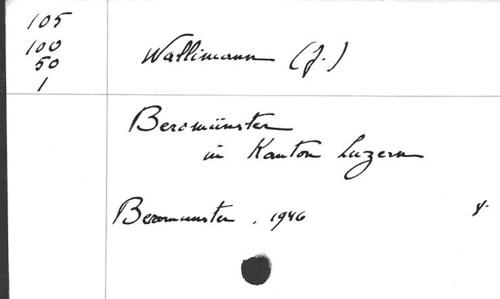 105
100
50
1
Wallimann (J.)
Beromünster
in Kanton Luzern
Beromunster . 1946